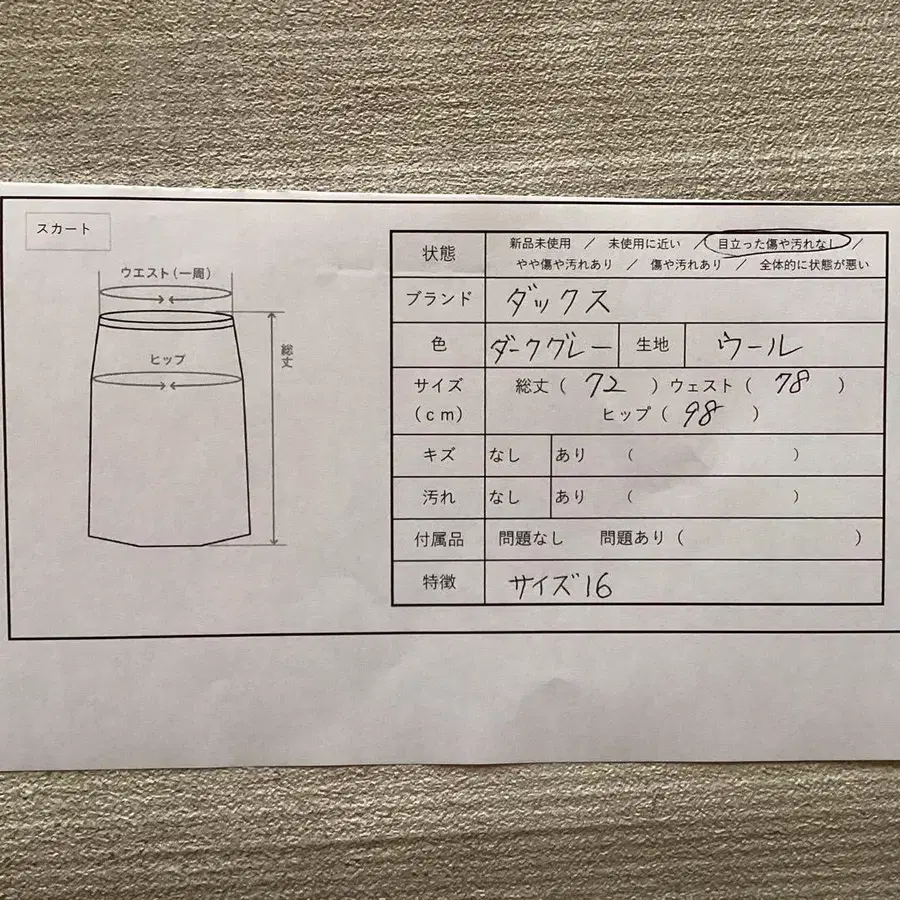 スカート
ウエスト(一周)
ヒップ
総丈
状態 新品未使用 / 未使用に近い / 目立った傷や汚れなし /
やや傷や汚れあり / 傷や汚れあり / 全体的に状態が悪い
ブランド ダックス
色 ダークグレー 生地 ウール
サイズ(cm) 総丈( 72 ) ウェスト( 78 )
ヒップ( 98 )
キズ なし あり ( )
汚れ なし あり ( )
付属品 問題なし 問題あり( )
特徴 サイズ16